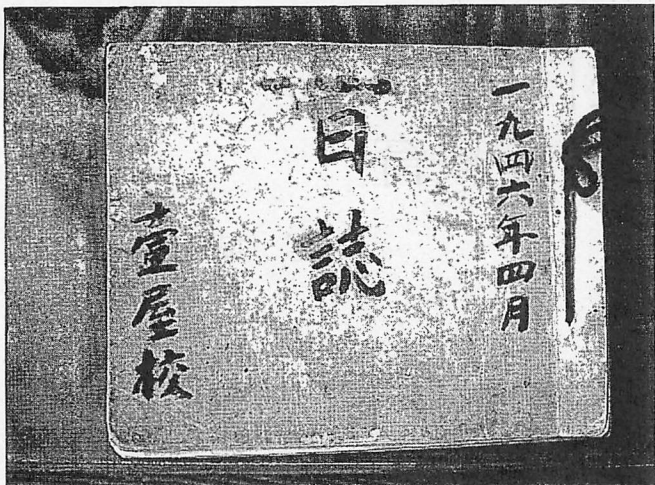 一九四六年四月
日誌
壺屋校